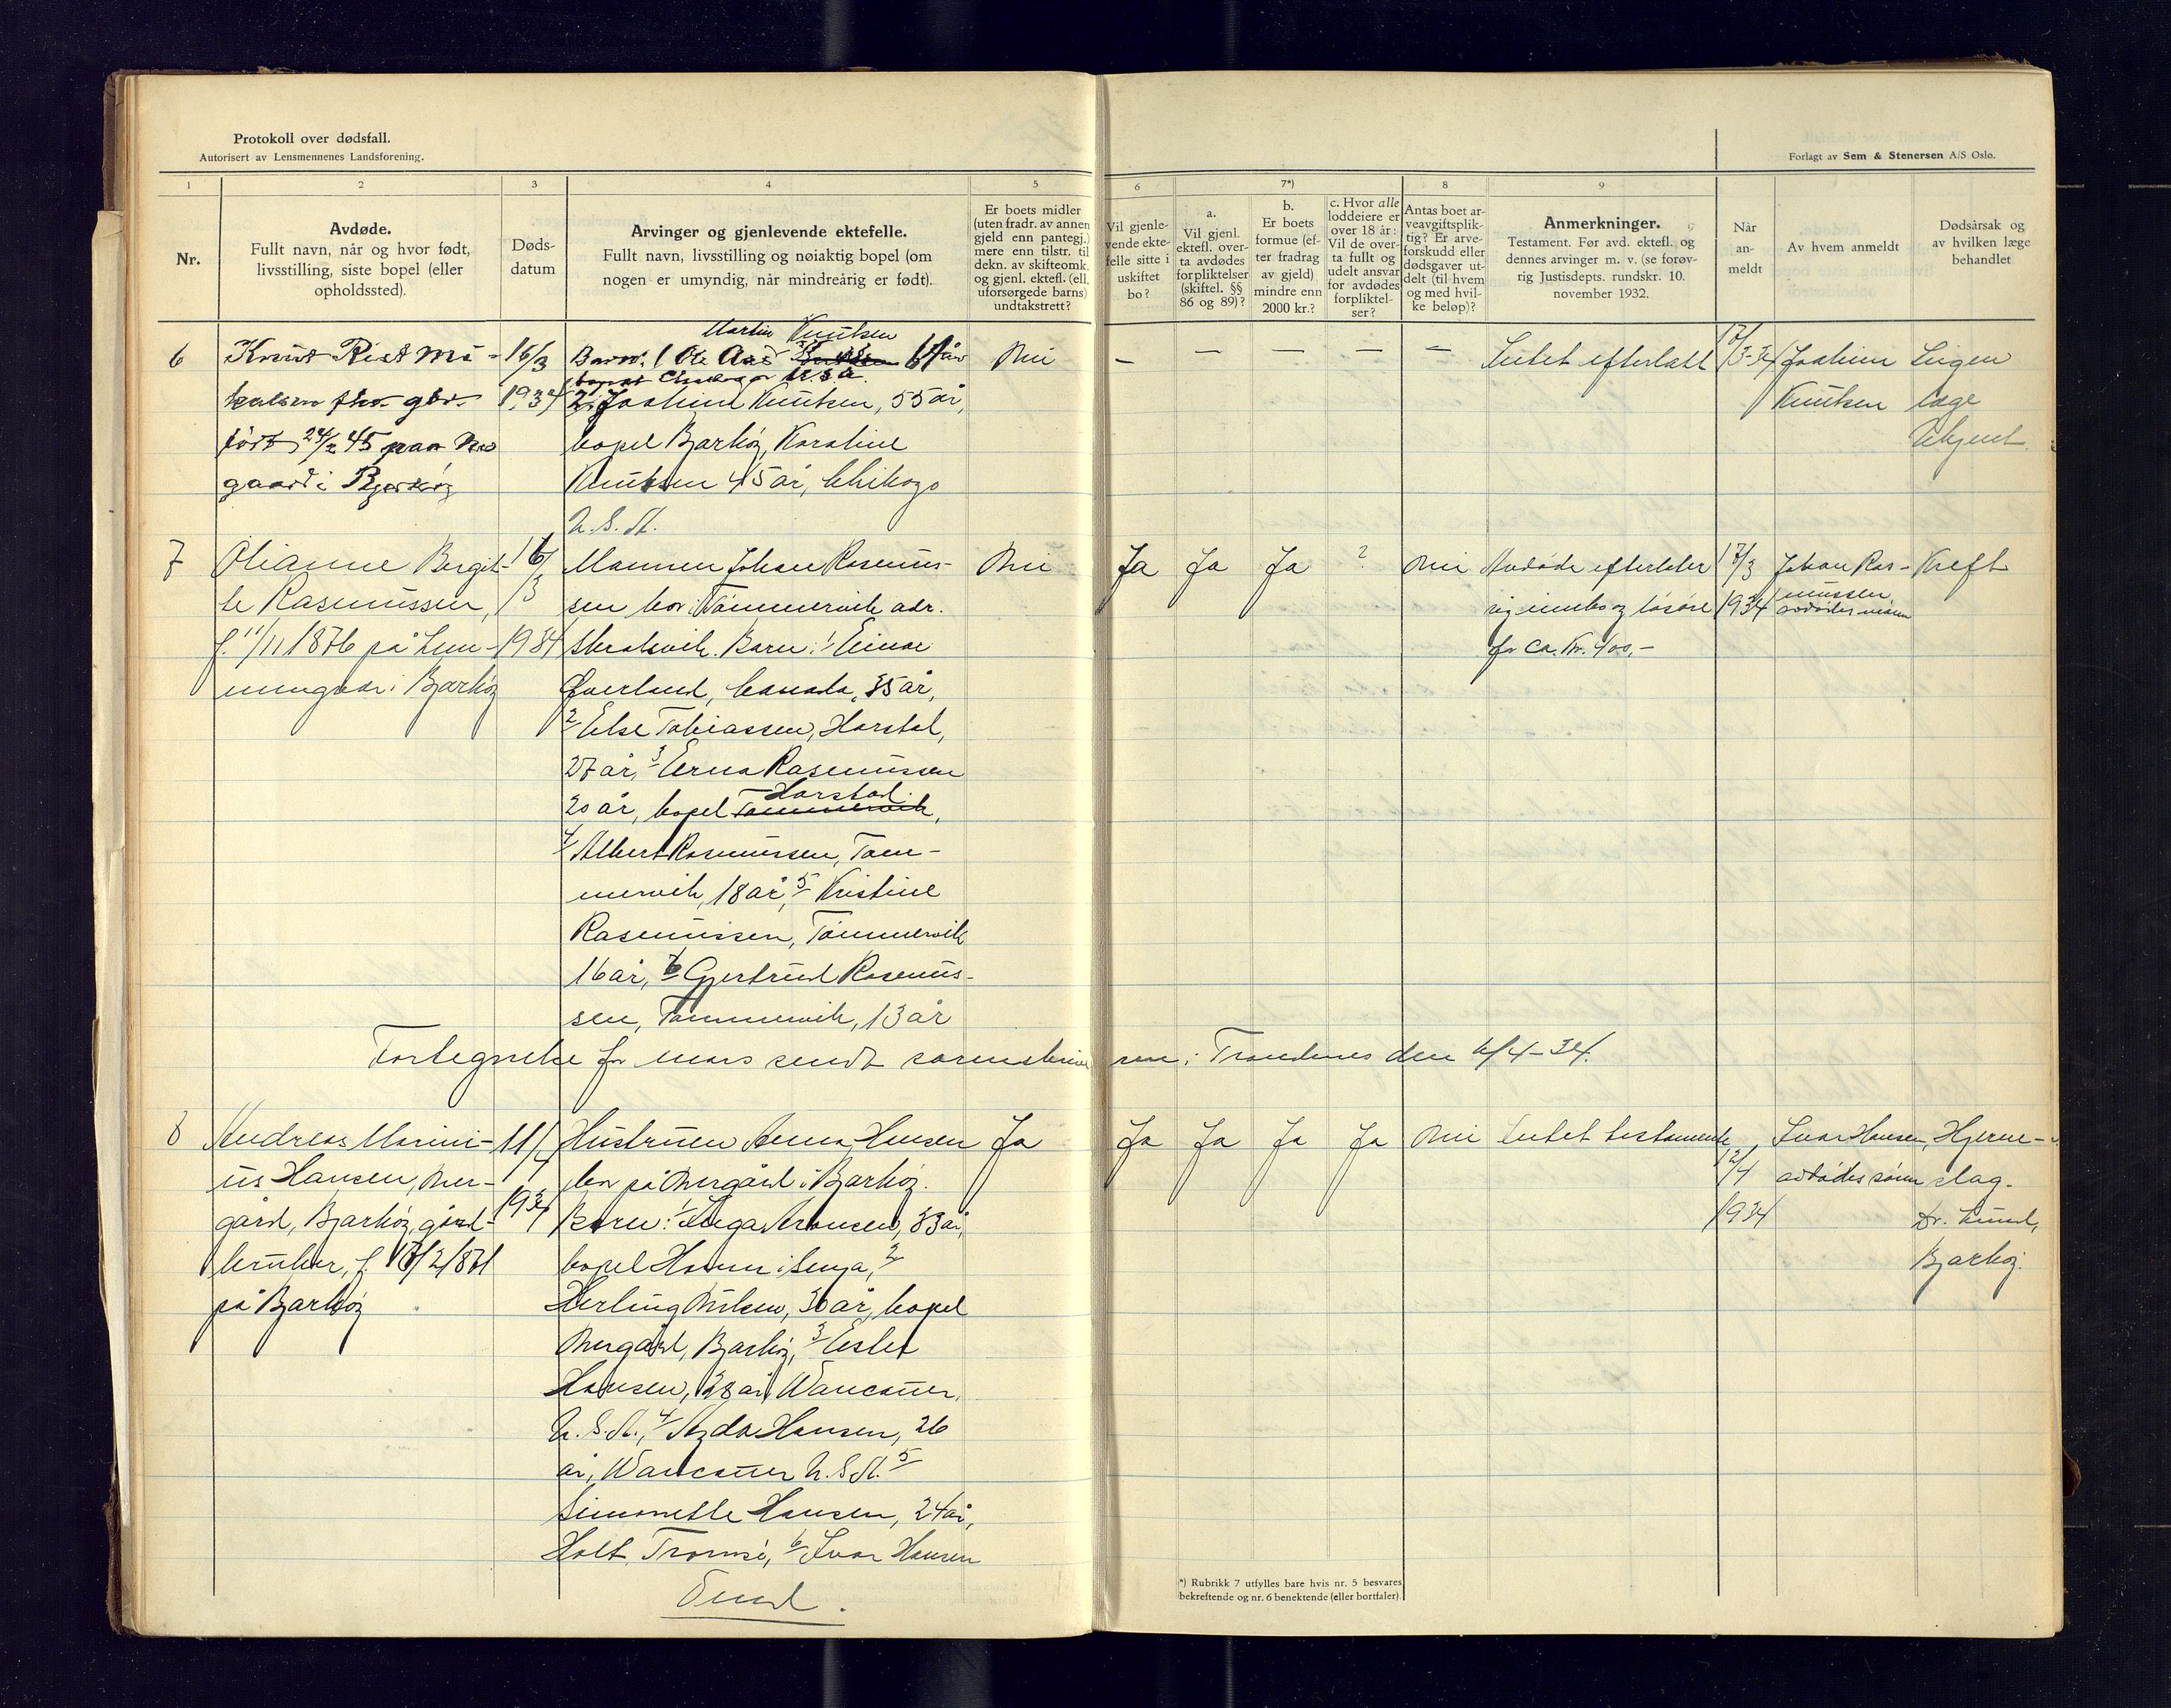 Protokoll over dødsfall.
Autorisert av Lensmennenes Landsforening.
Forlagt av Sem & Stenersen A/S Oslo.
1 2 3 4 5 6 7*) 8 9
Nr.
Avdøde.
Fullt navn, når og hvor født,
livsstilling, siste bopel (eller
opholdssted).
Døds-
datum
Arvinger og gjenlevende ektefelle.
Fullt navn, livsstilling og nøiaktig bopel (om
nogen er umyndig, når mindreårig er født).
Er boets midler
(uten fradr. av annen
gjeld enn pantegj.)
mere enn tilstr. til
dekn. av skifteomk.
og gjenl. ektefl. (ell.
uforsørgede barns)
undtakstrett?
Vil gjenle-
vende ekte-
felle sitte i
uskiftet
bo?
a.
Vil gjenl.
ektefl. over-
ta avdødes
forpliktelser
(skiftel. §§
86 og 89)?
b.
Er boets
formue (ef-
ter fradrag
av gjeld)
mindre enn
2000 kr.?
c. Hvor alle
loddeiere er
over 18 år:
Vil de over-
ta fullt og
udelt ansvar
for avdødes
forpliktel-
ser?
Antas boet ar-
veavgiftsplik-
tig? Er arve-
forskudd eller
dødsgaver ut-
delt (til hvem
og med hvil-
ke beløp)?
Anmerkninger.
Testament. Før avd. ektefl. og
dennes arvinger m. v. (se forøv-
rig Justisdepts. rundskr. 10.
november 1932.
Når
an-
meldt
Av hvem anmeldt
Dødsårsak og
av hvilken læge
behandlet
6
Knut Rist Mi-
kalsen fhv. gbr.
født 24/2 45 paa Ne
gaard i Bjarkøy
16/3
1934
Martin Knutsen
Barn: 1 Ole Aas Knutsen 61 år
bopæl Chicago U.S.A.
2. Joakim Knutsen, 55 år,
bopel Bjarkøy, Karoline
Knutsen 45 år, Chikago
U.S.A.
Nei
— — — — —
Intet efterlatt
/3-34
Joakim
Knutsen
Ingen
læge
tilkjent
7
Olianne Bergit-
te Rasmussen,
f. 11/11 1876 på Lem-
mingvær i Bjarkøy
16/
/3
1934
Mannen Johan Rasmus-
sen bor: Tømmervik adr.
Skrolsvik. Barn: 1/ Einar
Øverland, Canada, 35 år,
2/ Else Tobiassen, Harstad,
27 år, 3/ Erna Rasmussen
Harstad.
20 år, bopel Tømmervik,
4/ Albert Rasmussen, Tøm-
mervik, 18 år, 5/ Kristine
Rasmussen, Tømmervik
16 år, 6/ Gjertrud Rasmus-
sen, Tømmervik, 13 år
Nei
Ja Ja Ja ? Nei
Avdøde efterlater
sig innbo og løsøre
for ca. kr. 400,-
17/3
1934
Johan Ras-
mussen
avdødes mann
Kreft
Fortegnelse for mars sendt sorenskrive ren i Trondenes den 6/4-34.
8
Andreas Marini-
us Hansen, Ner-
gård, Bjarkøy, gård-
bruker, f. /2 1871
på Bjarkøy
11/
4
1934
Hustruen Anna Hansen
bor på Nergård i Bjarkøy.
Barn: 1/ Inga Aronsen, 33 år,
bopel Hamn i Senja, 2/
Herling Nilsen, 30 år, bopel
Nergård, Bjarkøy, 3/ Eslet
Hansen, 28 år, Wancouver,
U.S.A., 4/ Agda Hansen, 26
år, Wancouver U.S.A. 5/
Simonette Hansen, 24 år,
Holt, Tromsø, 6/ Ivar Hansen
Vend.
Ja
Ja Ja Ja Ja Nei
Intet testamente
12/4
1934
Ivar Hansen,
avdødes sønn
Hjerne-
slag.
Dr. Lund,
Bjarkøy.
*) Rubrikk 7 utfylles bare hvis nr. 5 besvares
bekreftende og nr. 6 benektende (eller bortfaler)